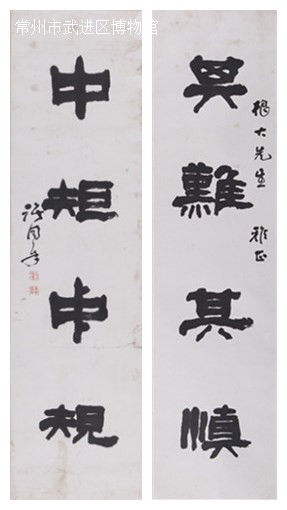 常州市武进区博物馆
其難其慎
大先生 雅正
中矩中規